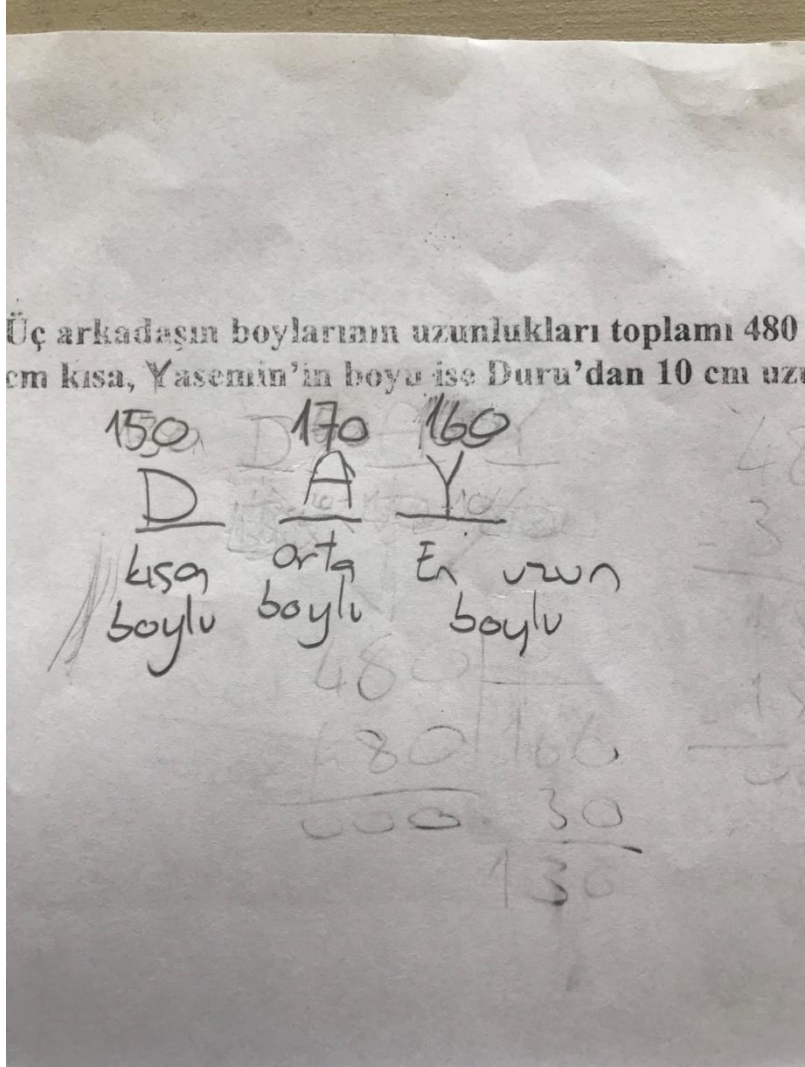 Üç arkadaşın boylarının uzunlukları toplamı 480
cm kısa, Yasemin'in boyu ise Duru'dan 10 cm
150 170 160
D A Y
kısa orta En uzun
boylu boylu boylu
480
480 166
000 30
130